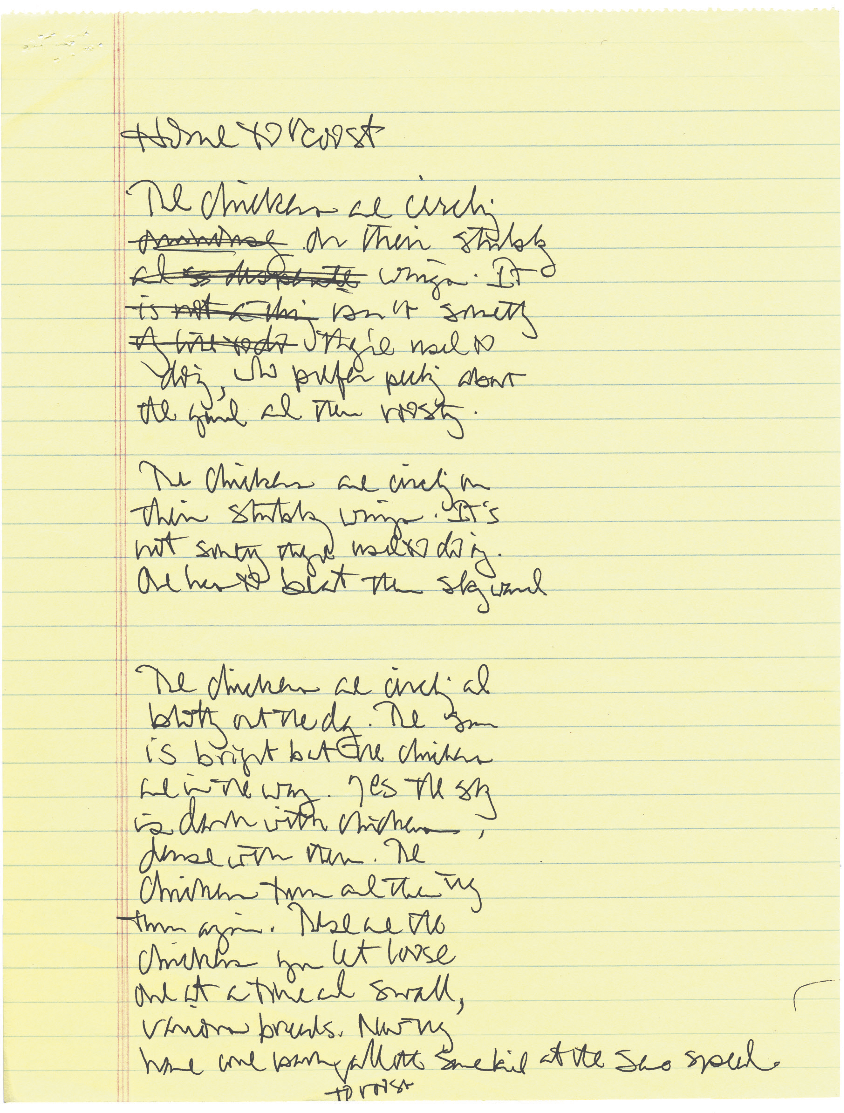 Home to roost
The chickens are circling
on their stubby
wings. It
is not a thing isn't something
they're used to
doing, who prefer pecking about
the yard and then roosting.
The chickens are circling on
their stubby wings. It's
not something they're used to doing.
One has to beat them skyward
The chickens are circling and
blotting out the day. The sun
is bright but the chickens
are in the way. Yes the sky
is dark with chickens,
dense with them. The
chickens turn and then they
turn again. These are the
chickens you let loose
one at a time and small,
various breeds. Now they
have come home all the same kind at the same speed.
to roost